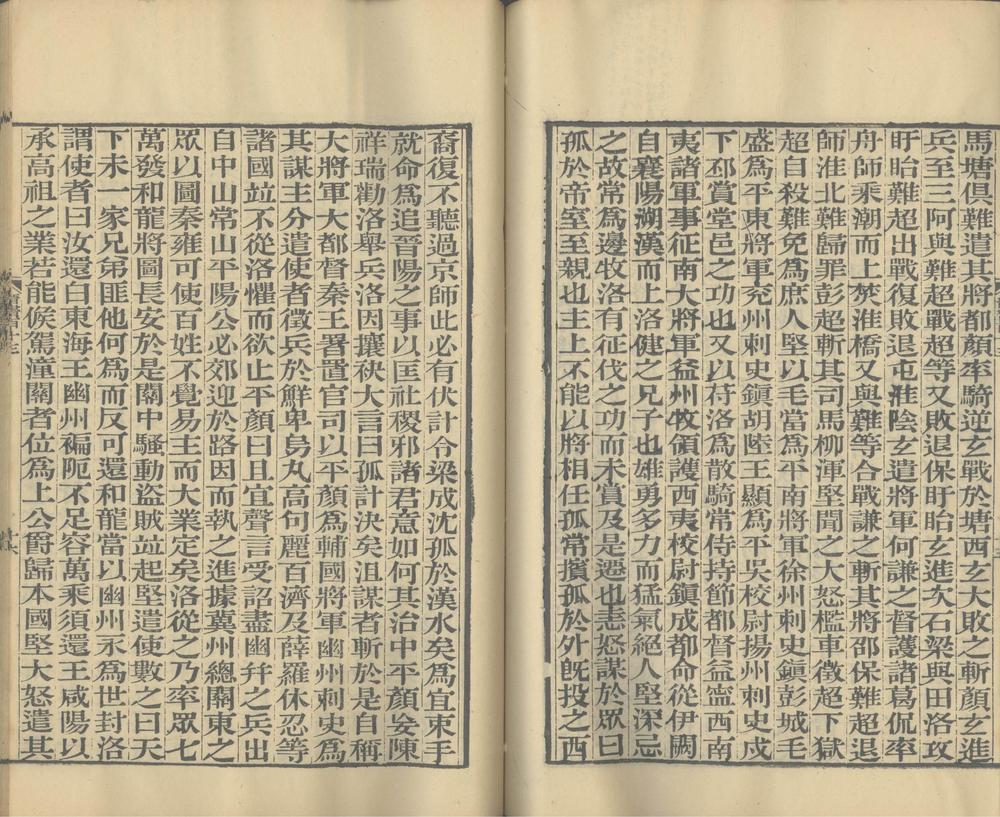 馬塘俱難遣其將都顏率騎逆玄戰於塘西玄大敗之斬顏玄進
兵至三阿與難超戰超等又敗退保盱眙玄進次石梁與田洛攻
盱眙難超出戰復敗退屯淮陰玄遣將軍何謙之督護諸葛侃率
舟師乘潮而上焚淮橋又與難等合戰謙之斬其將邵保難超退
師淮北難歸罪彭超斬其司馬柳渾堅聞之大怒檻車徵超下獄
超自殺難免為庶人堅以毛當為平南將軍徐州刺史鎮彭城毛
盛為平東將軍兖州刺史鎮胡陸王顯為平吳校尉揚州刺史戍
下邳賞堂邑之功也又以苻洛為散騎常侍持節都督益寧西南
夷諸軍事征南大將軍益州牧領護西夷校尉鎮成都命從伊闕
自襄陽溯漢而上洛健之兄子也雄勇多力而猛氣絕人堅深忌
之故常為邊牧洛有征伐之功而未賞及是遷也恚怒謀於眾曰
孤於帝室至親也主上不能以將相任孤常擯孤於外旣投之西
裔復不聽過京師此必有伏計令梁成沈孤於漢水矣為宜束手
就命為追晉陽之事以匡社稷邪諸君意如何其治中平顏妄陳
祥瑞勸洛舉兵洛因攘袂大言曰孤計決矣沮謀者斬於是自稱
大將軍大都督秦王署置官司以平顏為輔國將軍幽州刺史為
其謀主分遣使者徵兵於鮮卑烏丸高句麗百濟及薛羅休忍等
諸國竝不從洛懼而欲止平顏曰且宜聲言受詔盡幽并之兵出
自中山常山平陽公必郊迎於路因而執之進據冀州總關東之
眾以圖秦雍可使百姓不覺易主而大業定矣洛從之乃率眾七
萬發和龍將圖長安於是關中騷動盜賊竝起堅遣使數之曰天
下未一家兄弟匪他何為而反可還和龍當以幽州永為世封洛
謂使者曰汝還白東海王幽州褊阨不足容萬乘須還王咸陽以
承高祖之業若能候駕潼關者位為上公爵歸本國堅大怒遣其